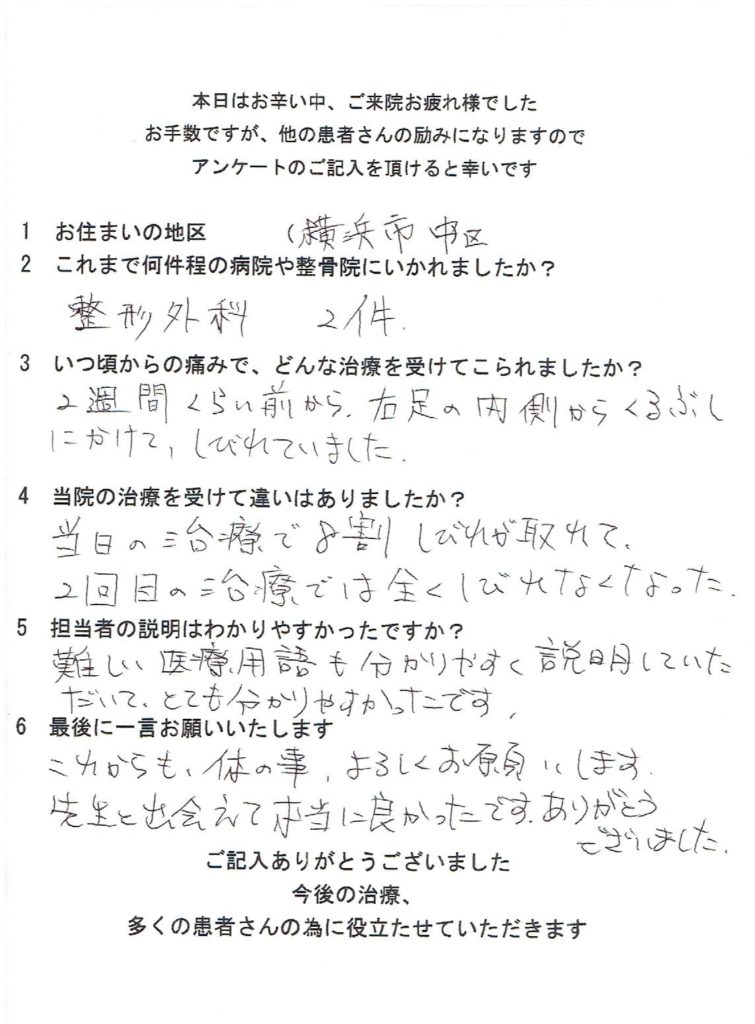 本日はお辛い中、ご来院お疲れ様でした
お手数ですが、他の患者さんの励みになりますので
アンケートのご記入を頂けると幸いです
1 お住まいの地区 横浜市中区
2 これまで何件程の病院や整骨院にいかれましたか？
整形外科 2件.
3 いつ頃からの痛みで、どんな治療を受けてこられましたか？
2週間くらい前から、右足の内側からくるぶし
にかけて、しびれていました.
4 当院の治療を受けて違いはありましたか？
当日の治療で8割しびれが取れて、
2回目の治療では全くしびれなくなった.
5 担当者の説明はわかりやすかったですか？
難しい医療用語も分かりやすく説明していた
だいて、とても分かりやすかったです,
6 最後に一言お願いいたします
これからも、体の事、よろしくお願いします.
先生と出会えて本当に良かったです.ありがとう
ございました.
ご記入ありがとうございました
今後の治療、
多くの患者さんの為に役立たせていただきます